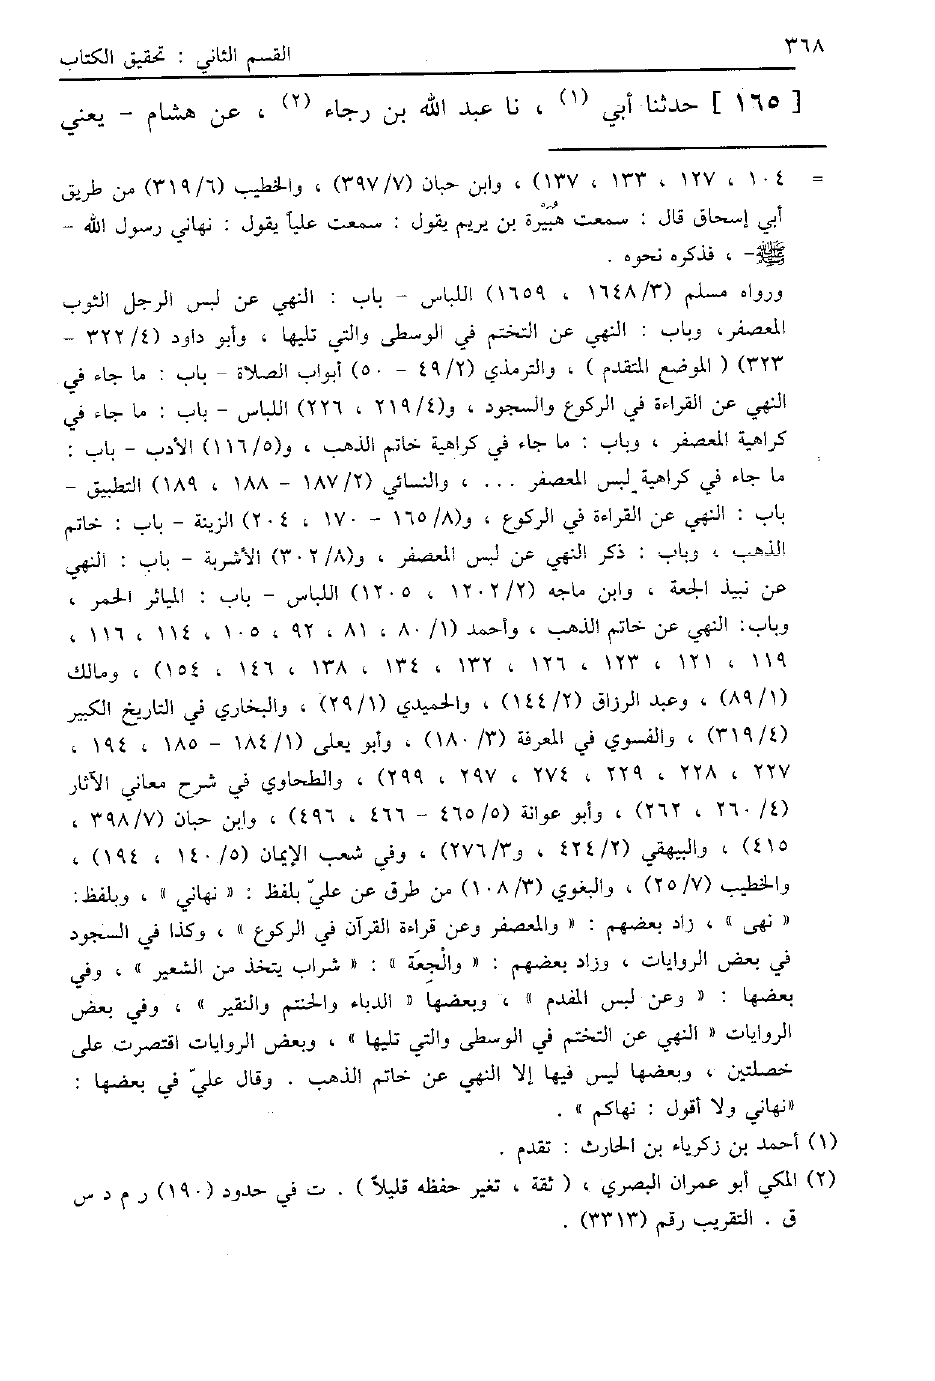 ٣٦٨
القسم الثاني : تحقيق الكتاب
[ ١٦٥ ] حدثنا أبي (١) ، نا عبد الله بن رجاء (٢) ، عن هشام – يعني
= ١٠٤ ، ١٢٧ ، ١٣٣ ، ١٣٧) ، وابن حبان (٣٩٧/٧) ، والخطيب (٣١٩/٦) من طريق
أبي إسحاق قال : سمعت هُبَيْرة بن يريم يقول : سمعت علياً يقول : نهاني رسول الله –
ﷺ – ، فذكره نحوه .
ورواه مسلم (١٦٤٨/٣ ، ١٦٥٩) اللباس – باب : النهي عن لبس الرجل الثوب
المعصفر، وباب : النهي عن التختم في الوسطى والتي تليها ، وأبو داود (٣٢٢/٤ –
٣٢٣) ( الموضع المتقدم ) ، والترمذي (٤٩/٢ – ٥٠) أبواب الصلاة – باب : ما جاء في
النهي عن القراءة في الركوع والسجود ، و(٢١٩/٤ ، ٢٢٦) اللباس – باب : ما جاء في
كراهية المعصفر ، وباب : ما جاء في كراهية خاتم الذهب ، و(١١٦/٥) الأدب – باب :
ما جاء في كراهية لبس المعصفر ... ، والنسائي (١٨٧/٢ – ١٨٨ ، ١٨٩) التطبيق –
باب : النهي عن القراءة في الركوع ، و(١٦٥/٨ – ١٧٠ ، ٢٠٤) الزينة – باب : خاتم
الذهب ، وباب : ذكر النهي عن لبس المعصفر ، و(٣٠٢/٨) الأشربة – باب : النهي
عن نبيذ الجعة ، وابن ماجه (١٢٠٢/٢ ، ١٢٠٥) اللباس – باب : المياثر الحمر ،
وباب: النهي عن خاتم الذهب ، وأحمد (٨٠/١ ، ٨١ ، ٩٢ ، ١٠٥ ، ١١٤ ، ١١٦ ،
١١٩ ، ١٢١ ، ١٢٣ ، ١٢٦ ، ١٣٢ ، ١٣٤ ، ١٣٨ ، ١٤٦ ، ١٥٤) ، ومالك
(٨٩/١) ، وعبد الرزاق (١٤٤/٢) ، والحميدي (٢٩/١) ، والبخاري في التاريخ الكبير
(٣١٩/٤) ، والفسوي في المعرفة (١٨٠/٣) ، وأبو يعلى (١٨٤/١ – ١٨٥ ، ١٩٤ ،
٢٢٧ ، ٢٢٨ ، ٢٢٩ ، ٢٧٤ ، ٢٩٧ ، ٢٩٩) ، والطحاوي في شرح معاني الآثار
(٢٦٠/٤ ، ٢٦٢) ، وأبو عوانة (٤٦٥/٥ – ٤٦٦ ، ٤٩٦) ، وابن حبان (٣٩٨/٧ ،
٤١٥) ، والبيهقي (٤٢٤/٢ ، و٢٧٦/٣) ، وفي شعب الإيمان (١٤٠/٥ ، ١٩٤) ،
والخطيب (٢٥/٧) ، والبغوي (١٠٨/٣) من طرق عن عليّ بلفظ : « نهاني » ، وبلفظ:
« نهى » ، زاد بعضهم : « والمعصفر وعن قراءة القرآن في الركوع » ، وكذا في السجود
في بعض الروايات ، وزاد بعضهم : « والْجِعَة » : « شراب يتخذ من الشعير » ، وفي
بعضها : « وعن لبس المفدم » ، وبعضها « الدباء والحنتم والنقير » ، وفي بعض
الروايات « النهي عن التختم في الوسطى والتي تليها » ، وبعض الروايات اقتصرت على
خصلتين ، وبعضها ليس فيها إلا النهي عن خاتم الذهب . وقال عليّ في بعضها :
«نهاني ولا أقول : نهاكم » .
(١) أحمد بن زكرياء بن الحارث : تقدم .
(٢) المكي أبو عمران البصري ، ( ثقة ، تغير حفظه قليلاً ) . ت في حدود (١٩٠) ر م د س
ق . التقريب رقم (٣٣١٣) .